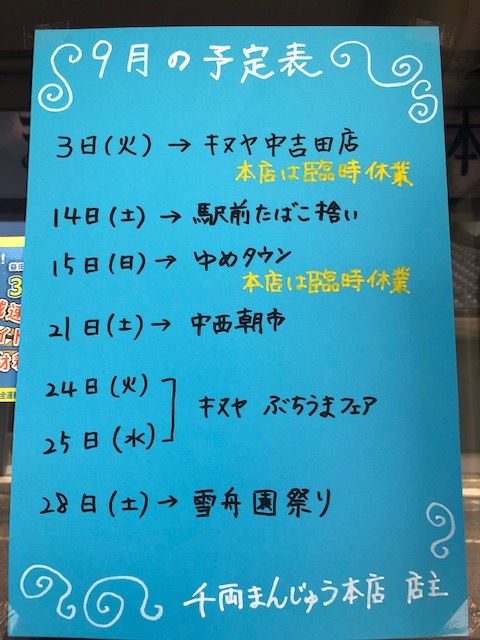 9月の予定表
3日(火)→ キヌヤ中吉田店
本店は臨時休業
14日(土)→ 駅前たばこ捨い
15日(日)→ ゆめタウン
本店は臨時休業
21日(土)→ 中西朝市
24日(火)
25日(水)
キヌヤ ぶちうまフェア
28日(土)→ 雪舟園祭り
千両まんじゅう本店 店主